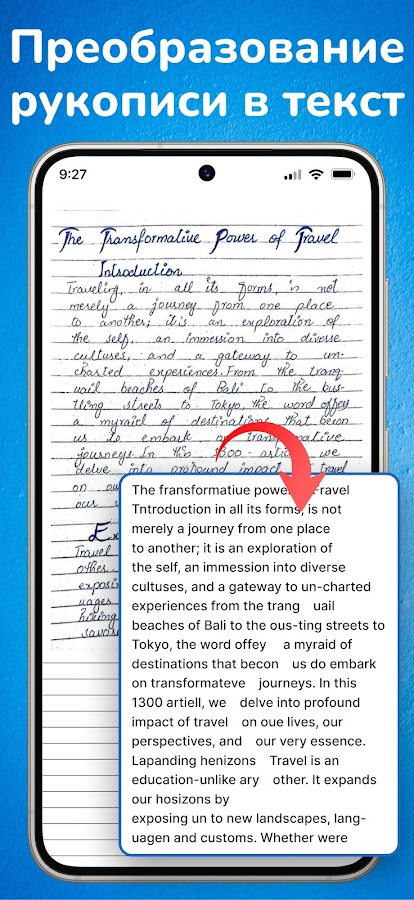 Преобразование
рукописи в текст
9:27
The Transformative Power of Travel
Introduction
Traveling, in all its forms, is not
merely a journey from one place
to another; it's an exploration of
the self, an immersion into diverse
cultures, and a gateway to un-
charted experiences. From the tranq
uail beaches of Bali to the bus-
tling streets to Tokyo, the word offey
a myraid of destinations that becon
us to embark on Transformative
journeys. In this 1300- article we
delve into profound impact travel
on ou
our
Ex
Travel
other.
exposi
uages
hiking
savori
The fransformatiue power Fravel
Tntroduction in all its forms, is not
merely a journey from one place
to another; it is an exploration of
the self, an immession into diverse
cultuses, and a gateway to un-charted
experiences from the trang uail
beaches of Bali to the ous-ting streets to
Tokyo, the word offey a myraid of
destinations that becon us do embark
on transformateve journeys. In this
1300 artiell, we delve into profound
impact of travel on oue lives, our
perspectives, and our very essence.
Lapanding henizons Travel is an
education-unlike ary other. It expands
our hosizons by
exposing un to new landscapes, lang-
uagen and customs. Whether were